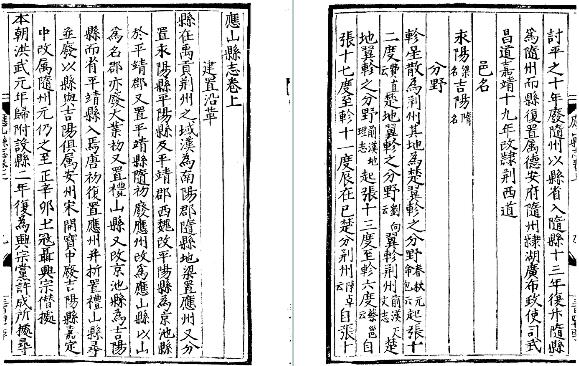 應山縣志卷上
建置沿革
縣在禹貢荊州之域漢為南陽郡隨縣地梁置應州又分
置永陽縣平陽縣及平靖郡西魏改平陽縣為京池縣
於平靖郡又置平靖縣隨初廢應州改為應山縣以山
為名郡亦廢大業初又置禮山縣又改京池縣為吉陽
縣而省平靖縣入焉唐初復置應州并析置禮山縣尋
並廢以縣與吉陽俱屬安州宋開寶中廢吉陽縣嘉定
中改屬隨州元仍之至正辛卯土冦聶興宗僭據
本朝洪武元年歸附設縣二年復為興宗黨許成所據尋
討平之十年廢隨州以縣省入隨縣十三年復升隨縣
為隨州而縣復置屬德安府隨州隸湖廣布政使司武
昌道嘉靖十九年改隸荊西道
邑名
永陽梁名吉陽隋名
分野
軫星散為荊州其地為楚翼軫之分野春秋元命包云起張十
二度費直云楚地翼軫之分野劉向云翼軫荊州前漢天文志云楚
地翼軫之分野前漢地理志起張十三度至軫六度蔡邕云自
張十七度至軫十一度辰在巳楚分荊州陳卓云自張十